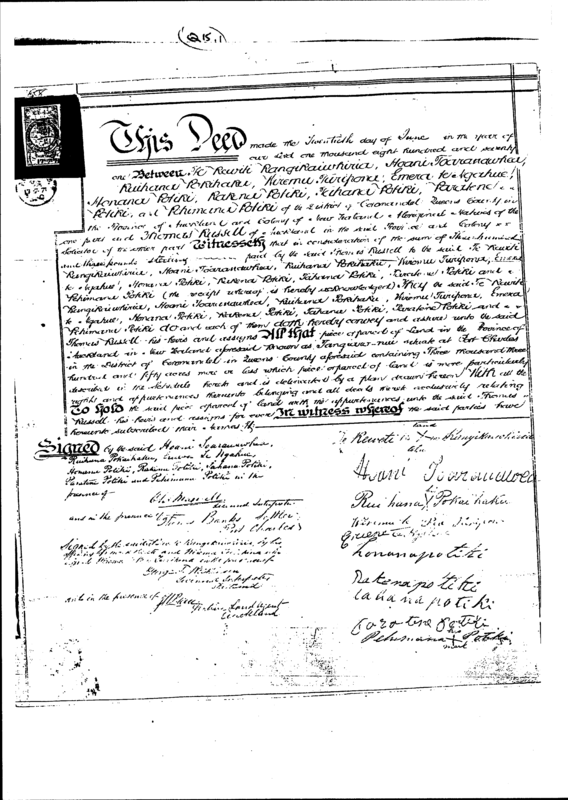 (QB.1)
This Deed made the Twentieth day of June in the year of
our Lord one thousand eight hundred and seventy
one Between Te Rewiti Rangikaiwhiria, Hoani Toarauawhea,
Ruihana Pokaihaku, Wiremu Turipona, Emera te Ngahue,
Honana Potiki, Rakena Potiki, Tahana Potiki, Paratene
Potiki, and Pehimana Potiki of the District of Coromandel Queens County in
the Province of Auckland and Colony of New Zealand Aboriginal Natives of the
one part and Thomas Russell of Auckland in the said Province and Colony
Solicitor of the other part Witnesseth that in consideration of the sum of Three hundred
and three pounds sterling paid by the said Thomas Russell to the said Te Rewiti
Rangikaiwhiria, Hoani Toarauawhea, Ruihana Pokaihaku, Wiremu Turipona, Emera
te Ngahue, Honana Potiki, Rakena Potiki, Tahana Potiki, Paratene Potiki and
Pehimana Potiki (the receipt whereof is hereby acknowledged) They the said Te Rewiti
Rangikaiwhiria, Hoani Toarauawhea, Ruihana Pokaihaku, Wiremu Turipona, Emera
te Ngahue, Honana Potiki, Rakena Potiki, Tahana Potiki, Paratene Potiki and
Pehimana Potiki do and each of them doth hereby convey and assure unto the said
Thomas Russell his heirs and assigns All that piece or parcel of Land in the Province of
Auckland in New Zealand aforesaid known as situate at Port Charles
in the District of Coromandel in Queens County aforesaid containing Three thousand three
hundred and fifty acres more or less which piece or parcel of land is more particularly
described in the Schedule hereto and is delineated by a plan drawn hereon With all the
rights and appurtenances thereunto belonging and all deeds relating
To Hold the said piece or parcel of land with its appurtenances unto the said Thomas
Russell his heirs and assigns for ever In witness whereof the said parties have
hereunto subscribed their names
Signed by the said Hoani Toarauawhea
Ruihana Pokaihaku, Emera Te Ngahue,
Honana Potiki, Rakena Potiki, Tahana Potiki,
Paratene Potiki and Pehimana Potiki in the
presence of
Licensed Interpreter
and in the presence of James Banks Settler
Port Charles
Licensed Interpreter
Auckland
and in the presence of
Land Agent
Auckland
Te Rewiti Rangikaiwhiria
Hoani Toarauawhea
Ruihana X Pokaihaku
honanapotiki
Rakenapotiki
tahanapotiki
Pehimana X Potiki
mark